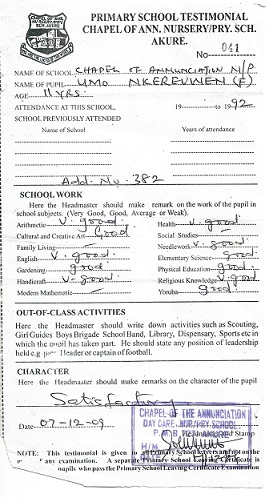 PRIMARY SCHOOL TESTIMONIAL
CHAPEL OF ANN. NURSERY/PRY. SCH.
AKURE.
No 041
NAME OF SCHOOL CHAPEL OF ANNUNCIATION N/P
NAME OF PUPIL UMO NKEREUWEN (F)
AGE 11 YRS.
ATTENDANCE AT THIS SCHOOL. 19 to 1992
SCHOOL PREVIOUSLY ATTENDED
Name of School Years of attendance
Add. No. 382
SCHOOL WORK
Here the Headmaster should make remark on the work of the pupil in
school subjects. (Very Good, Good, Average or Weak).
Arithmetic V. good Health V. good
Cultural and Creative Art Good Social Studies
Family Living Needlework V. good
English V. good Elementary Science Good
Gardening good Physical Education good
Handicraft V. good Religious Knowledge good
Modern Mathematic Yoruba Good
OUT-OF-CLASS ACTIVITIES
Here the Headmaster should write down activities such as Scouting,
Girl Guides Boys Brigade School Band, Library, Dispensary, Sports etc in
which the pupil has taken part. He should state any position of leadership
held e.g Header or captain of football.
CHARACTER
Here the Headmaster should make remarks on the character of the pupil
Satisfactory
Date 07-12-09
CHAPEL OF THE ANNUNCIATION
DAY CARE, NUR/PRY SCHOOL
P.M.B. AKURE
H/M and Stamp
NOTE: This testimonial is given to all Primary School
any examination. A separate Primary School is
pupils who pass the Primary School Leaving Certificate Examination